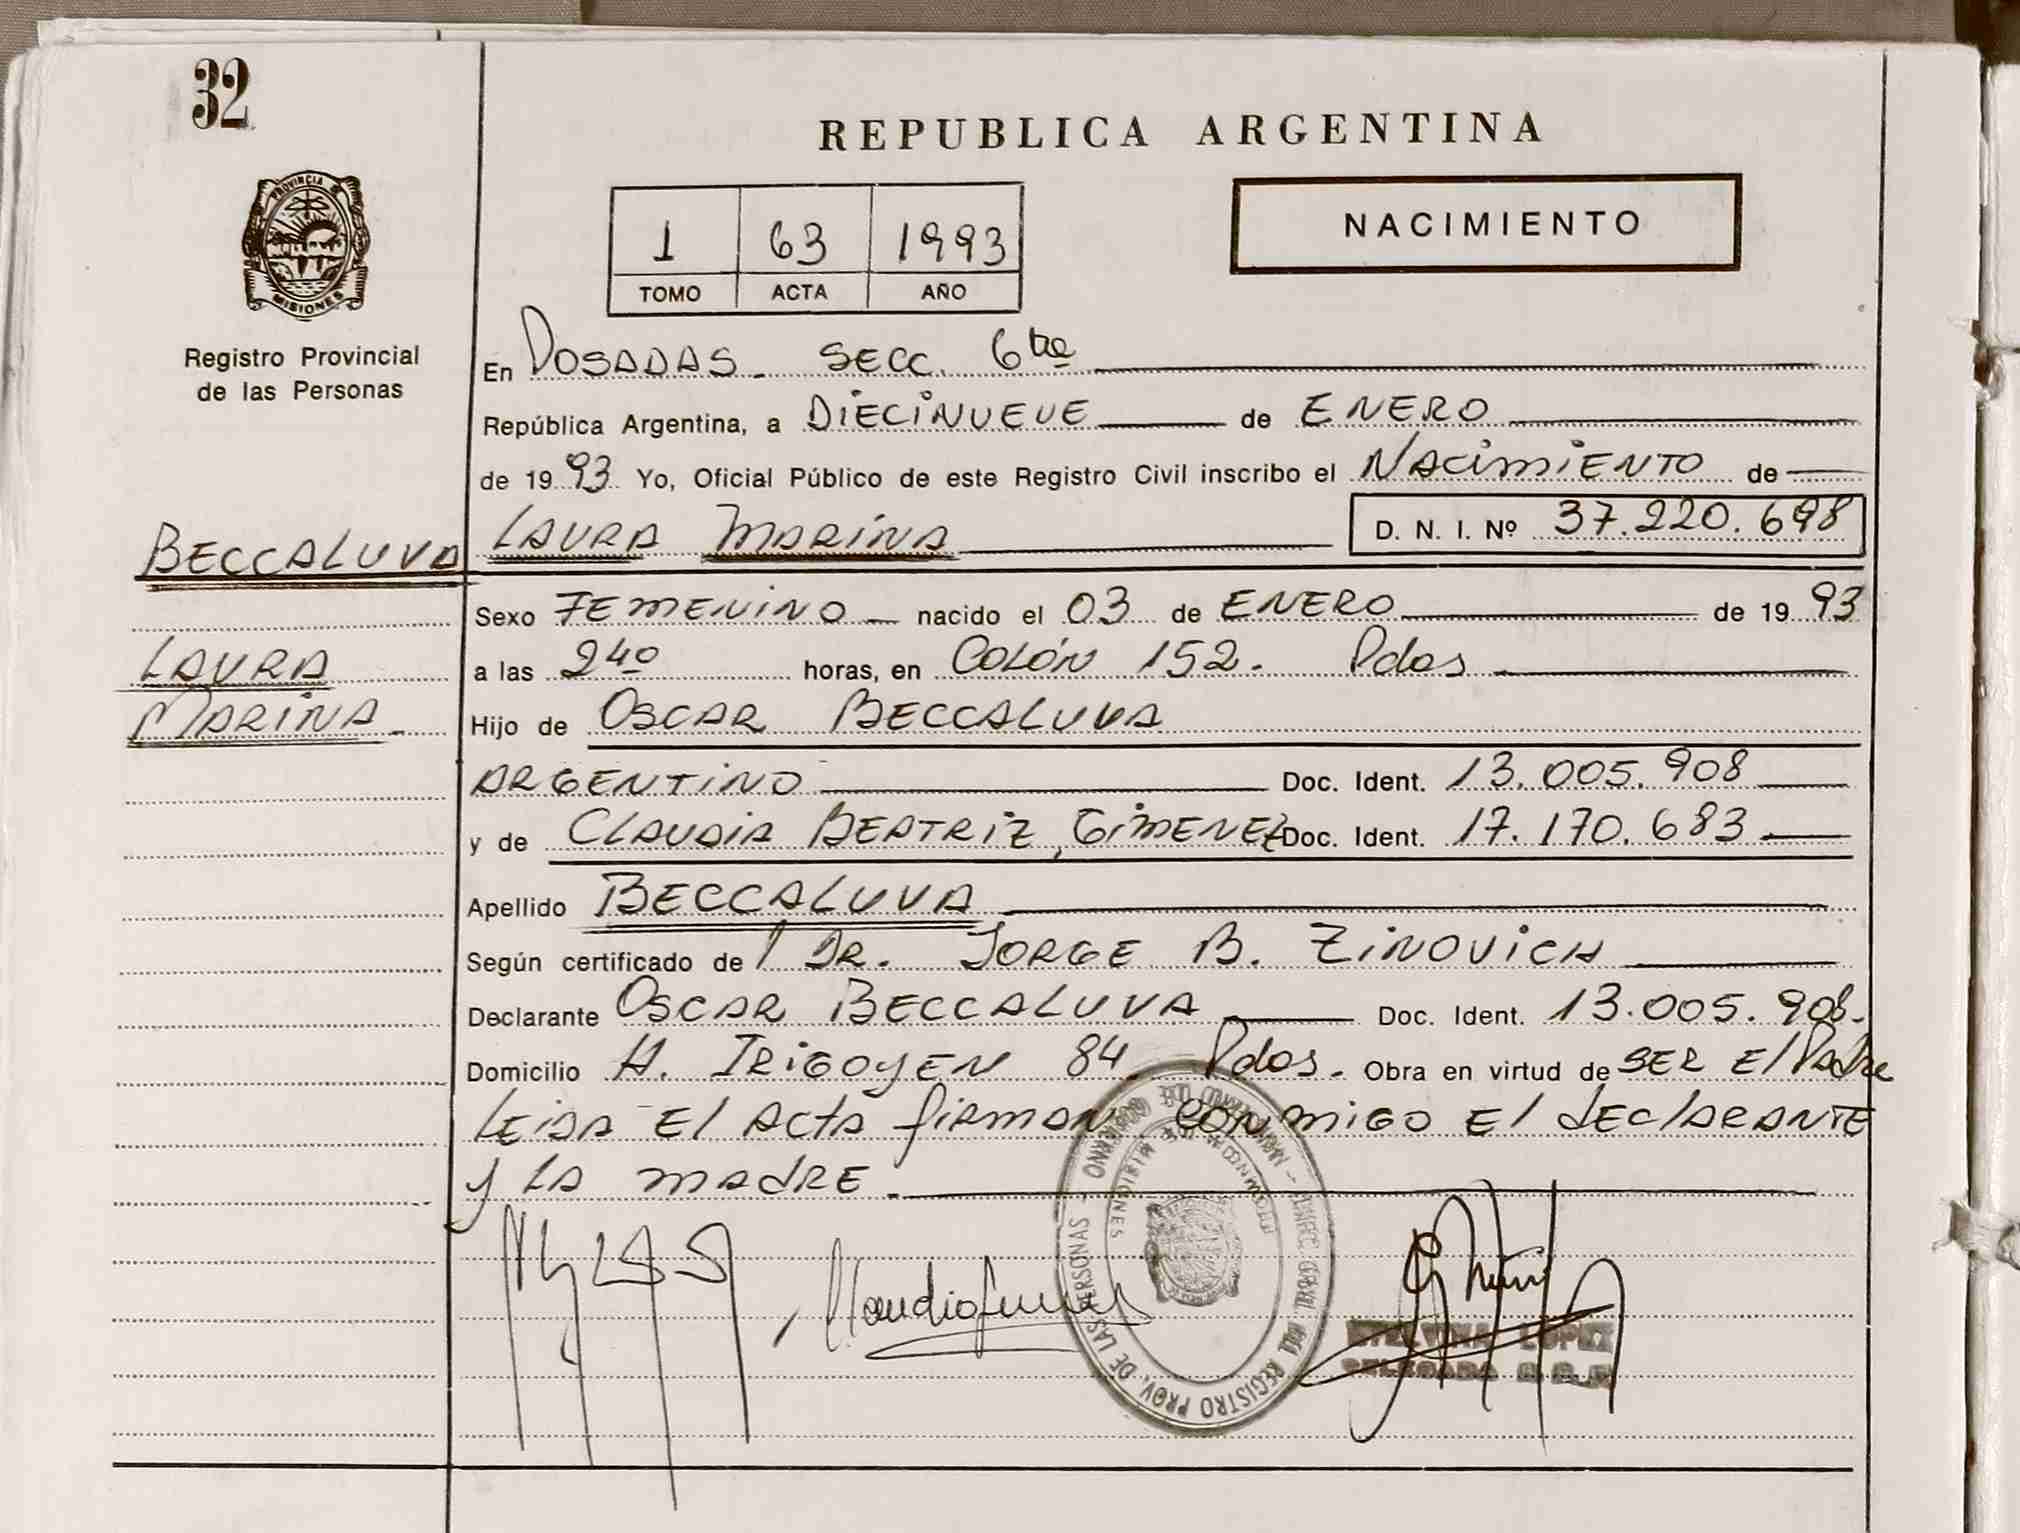 32
REPUBLICA ARGENTINA
PROVINCIA DE
MISIONES
Registro Provincial
de las Personas
1 63 1993
TOMO ACTA AÑO
NACIMIENTO
En POSADAS. SECC. 6ta
República Argentina, a DIECINUEVE de ENERO
de 1993 Yo, Oficial Público de este Registro Civil inscribo el NACIMIENTO de
BECCALUVA LAURA MARINA D. N. I. Nº 37.220.698
Sexo FEMENINO nacido el 03 de ENERO de 1993
LAURA
a las 240 horas, en COLÓN 152. Pdas
MARINA
Hijo de OSCAR BECCALUVA
ARGENTINO Doc. Ident. 13.005.908
y de CLAUDIA BEATRIZ, GIMENEZ Doc. Ident. 17.170.683
Apellido BECCALUVA
Según certificado de DR. JORGE B. ZINOVICH
Declarante OSCAR BECCALUVA Doc. Ident. 13.005.908.
Domicilio H. IRIGOYEN 84. Pdas. Obra en virtud de SER El Padre
LEIDA El ACTA firman CONMIGO El dEClARANTE
y LA MADRE
REGISTRO PROV. DE LAS PERSONAS
MISIONES